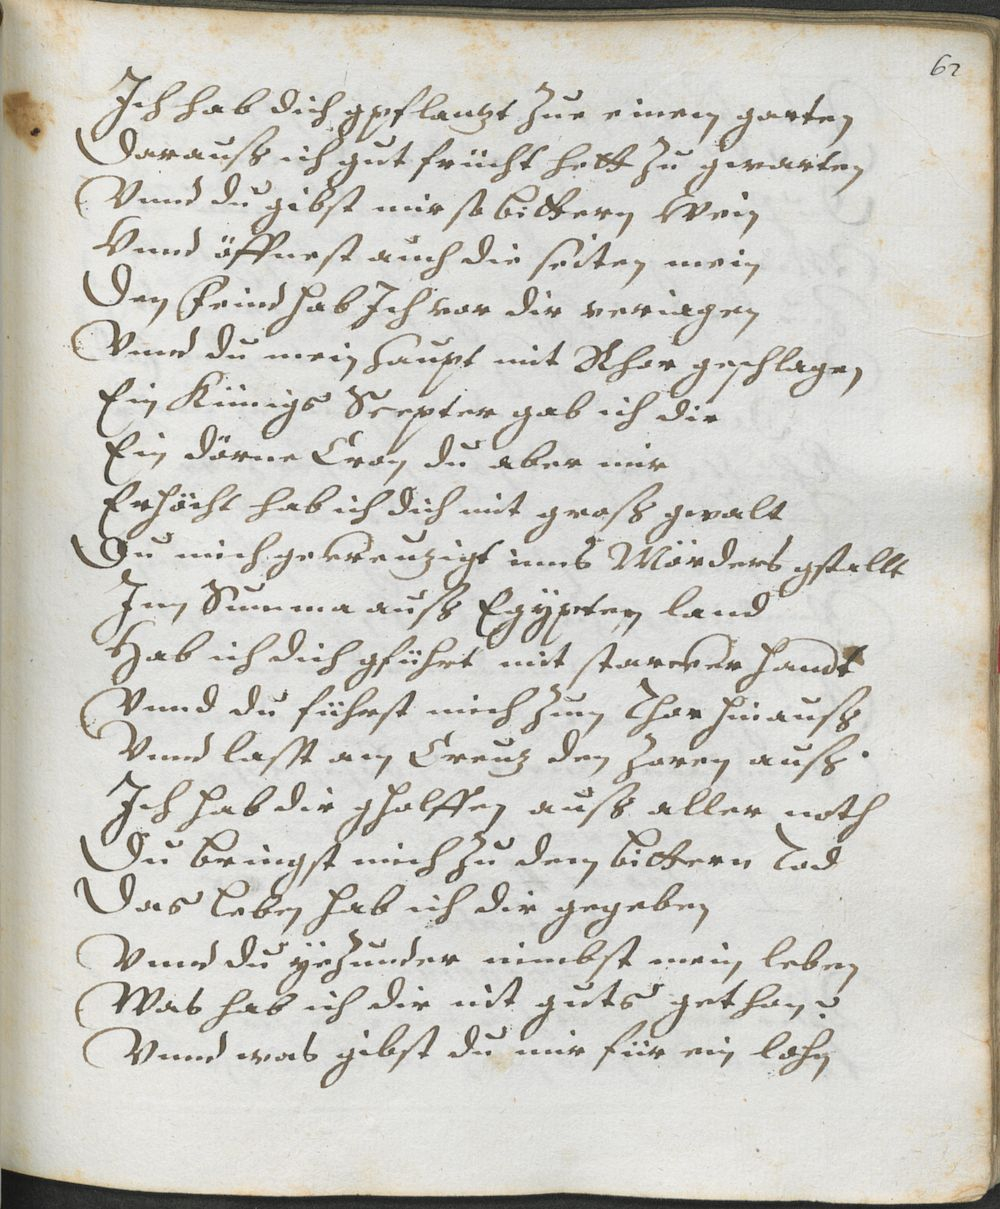 62
Ich hab dich gpflantzt zue einem garten
Darauß ich gut frücht hett zu gwarten
Vnnd du gibst mir so bittern Wein
Vnnd öffnest auch die seiten mein
Den Feind hab Ich vor dir veriagen
Vnnd du mein haupt mit Rhor geschlagen
Ein Künigs Scepter gab ich dir
Ein dörne Cron du aber mir
Erhöcht hab ich dich mit gross gwalt
Du mich gekreutzigt inns Mörders gstallt
Inn Summa auß Egypten land
Hab ich dich gführt mit starcker handt
Vnnd du führst mich zum Thor hinauß
Vnnd last am Creutz den zoren auß.
Ich hab dir gholffen auß aller noth
Du bringst mich zu dem bittern Tod
Das leben hab ich dir gegeben
Vnnd du yezunder nimbst mein leben
Was hab ich dir nit guts gethan?
Vnnd was gibst du mir für ein lohn